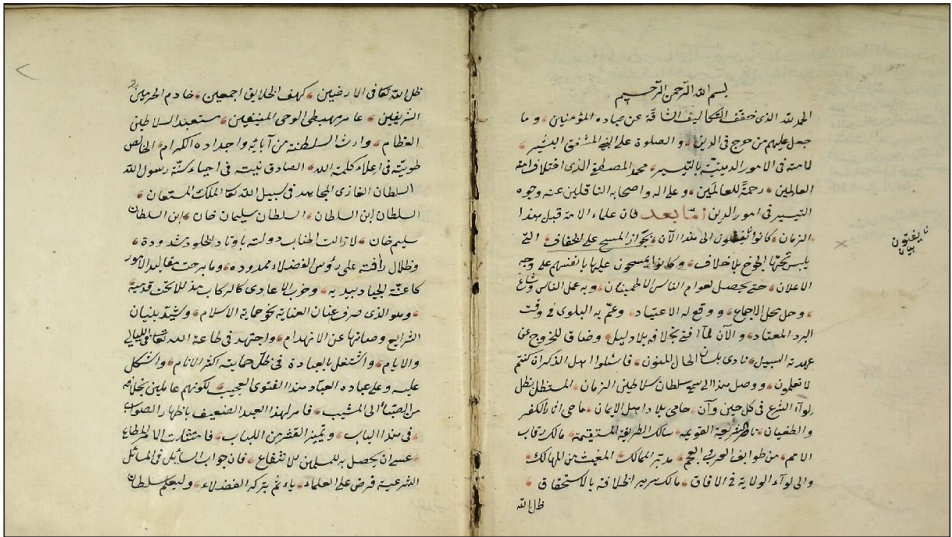 بسم الله الرحمن الرحيم
الحمد لله الذى خفف التكاليف الشاقة عن عباده المؤمنين وما
جعل عليهم من حرج فى الدين والصلوة على النبى المشفق البشير
لامته فى الامور الدينية بالتيسير محمد المصطفى الذى اختلاف امته
العالمين رحمة للعالمين وعلى اله واصحابه الناقلين عنه وجوه
التيسير فى امور الدين اما بعد فان علماء الامة قبل هذا
الزمان كانوا يفتون الى هذا الآن بجواز المسح على الخفاف التى
يلبس تحتها الجوخ بلا خلاف وكانوا يمسحون عليها بانفسهم على وجه
الاعلان حتى يحصل لعوام الناس الاطمينان وبه عمل الناس وشاع
وحل محل الاجماع ووقع له الاعتياد وعم به البلوى فى وقت
البرد المعتاد والآن لما افتى بخلافه بلا دليل وضاق للخروج عن
عهدته السبيل نادى بلسان الحال الملهوفون فاسئلوا اهل الذكر ان كنتم
لا تعلمون ووصل هذا الى سمع سلطان سلاطين الزمان المستظل بظل
لوآء الشرع فى كل حين وآن حامى بلاد اهل الايمان ماحى اثار الكفر
والطغيان ناظر شريعة القويمة سالك الطريقة المستقيمة مالك رقاب
الامم من طوايف العرب والعجم مدبر الممالك المغيث من المهالك
والى لوآء الولاية فى الافاق مالك سرير الخلافة بالاستحقاق
ظل الله
يفتون
بيان
ظل الله تعالى فى الارضين كهف الخلايق اجمعين خادم الحرمين
الشريفين عامر مهبطى الوحى المنيفين مستعبد السلاطين
العظام وارث السلطنة من آبائه واجداده الكرام الخالص
طويته فى اعلاء كلمة الله الصادق نيته فى احياء سنة رسول الله
السلطان الغازى المجاهد فى سبيل الله تعالى الملك المستعان
السلطان ابن السلطان السلطان سليمان خان ابن السلطان
سليم خان لا زالت اطناب دولته باوتاد الخلود مشدودة
وظلال رأفته على رؤس الفضلاء ممدودة وما برحت مقاليد الامور
كاعنة الجياد بيديه وخرب الاعادى كالركاب مذللا تحت قدميه
وهو الذى صرف عنان العناية نحو حماية الاسلام وشيد بنيان
الشرايع وصانها عن الانهدام واجتهد فى طاعة الله تعالى الليالى
والايام واشتغل بالعبادة فى ظل حمايته اكثر الانام واشكل
عليه وعلى عباده العباد هذا الفتوى العجيب لكونهم عاملين بخلافه
من الصبا الى المشيب فامر لهذا العبد الضعيف باظهار الصواب
فى هذا الباب وتمييز القشر من اللباب فامتثلت الامر المطاع
عسى ان يحصل به للمسلمين الانتفاع فان جواب السائل فى المسائل
الشرعية فرض على العلماء ياثم بتركه الفضلاء وليعلم سلطان